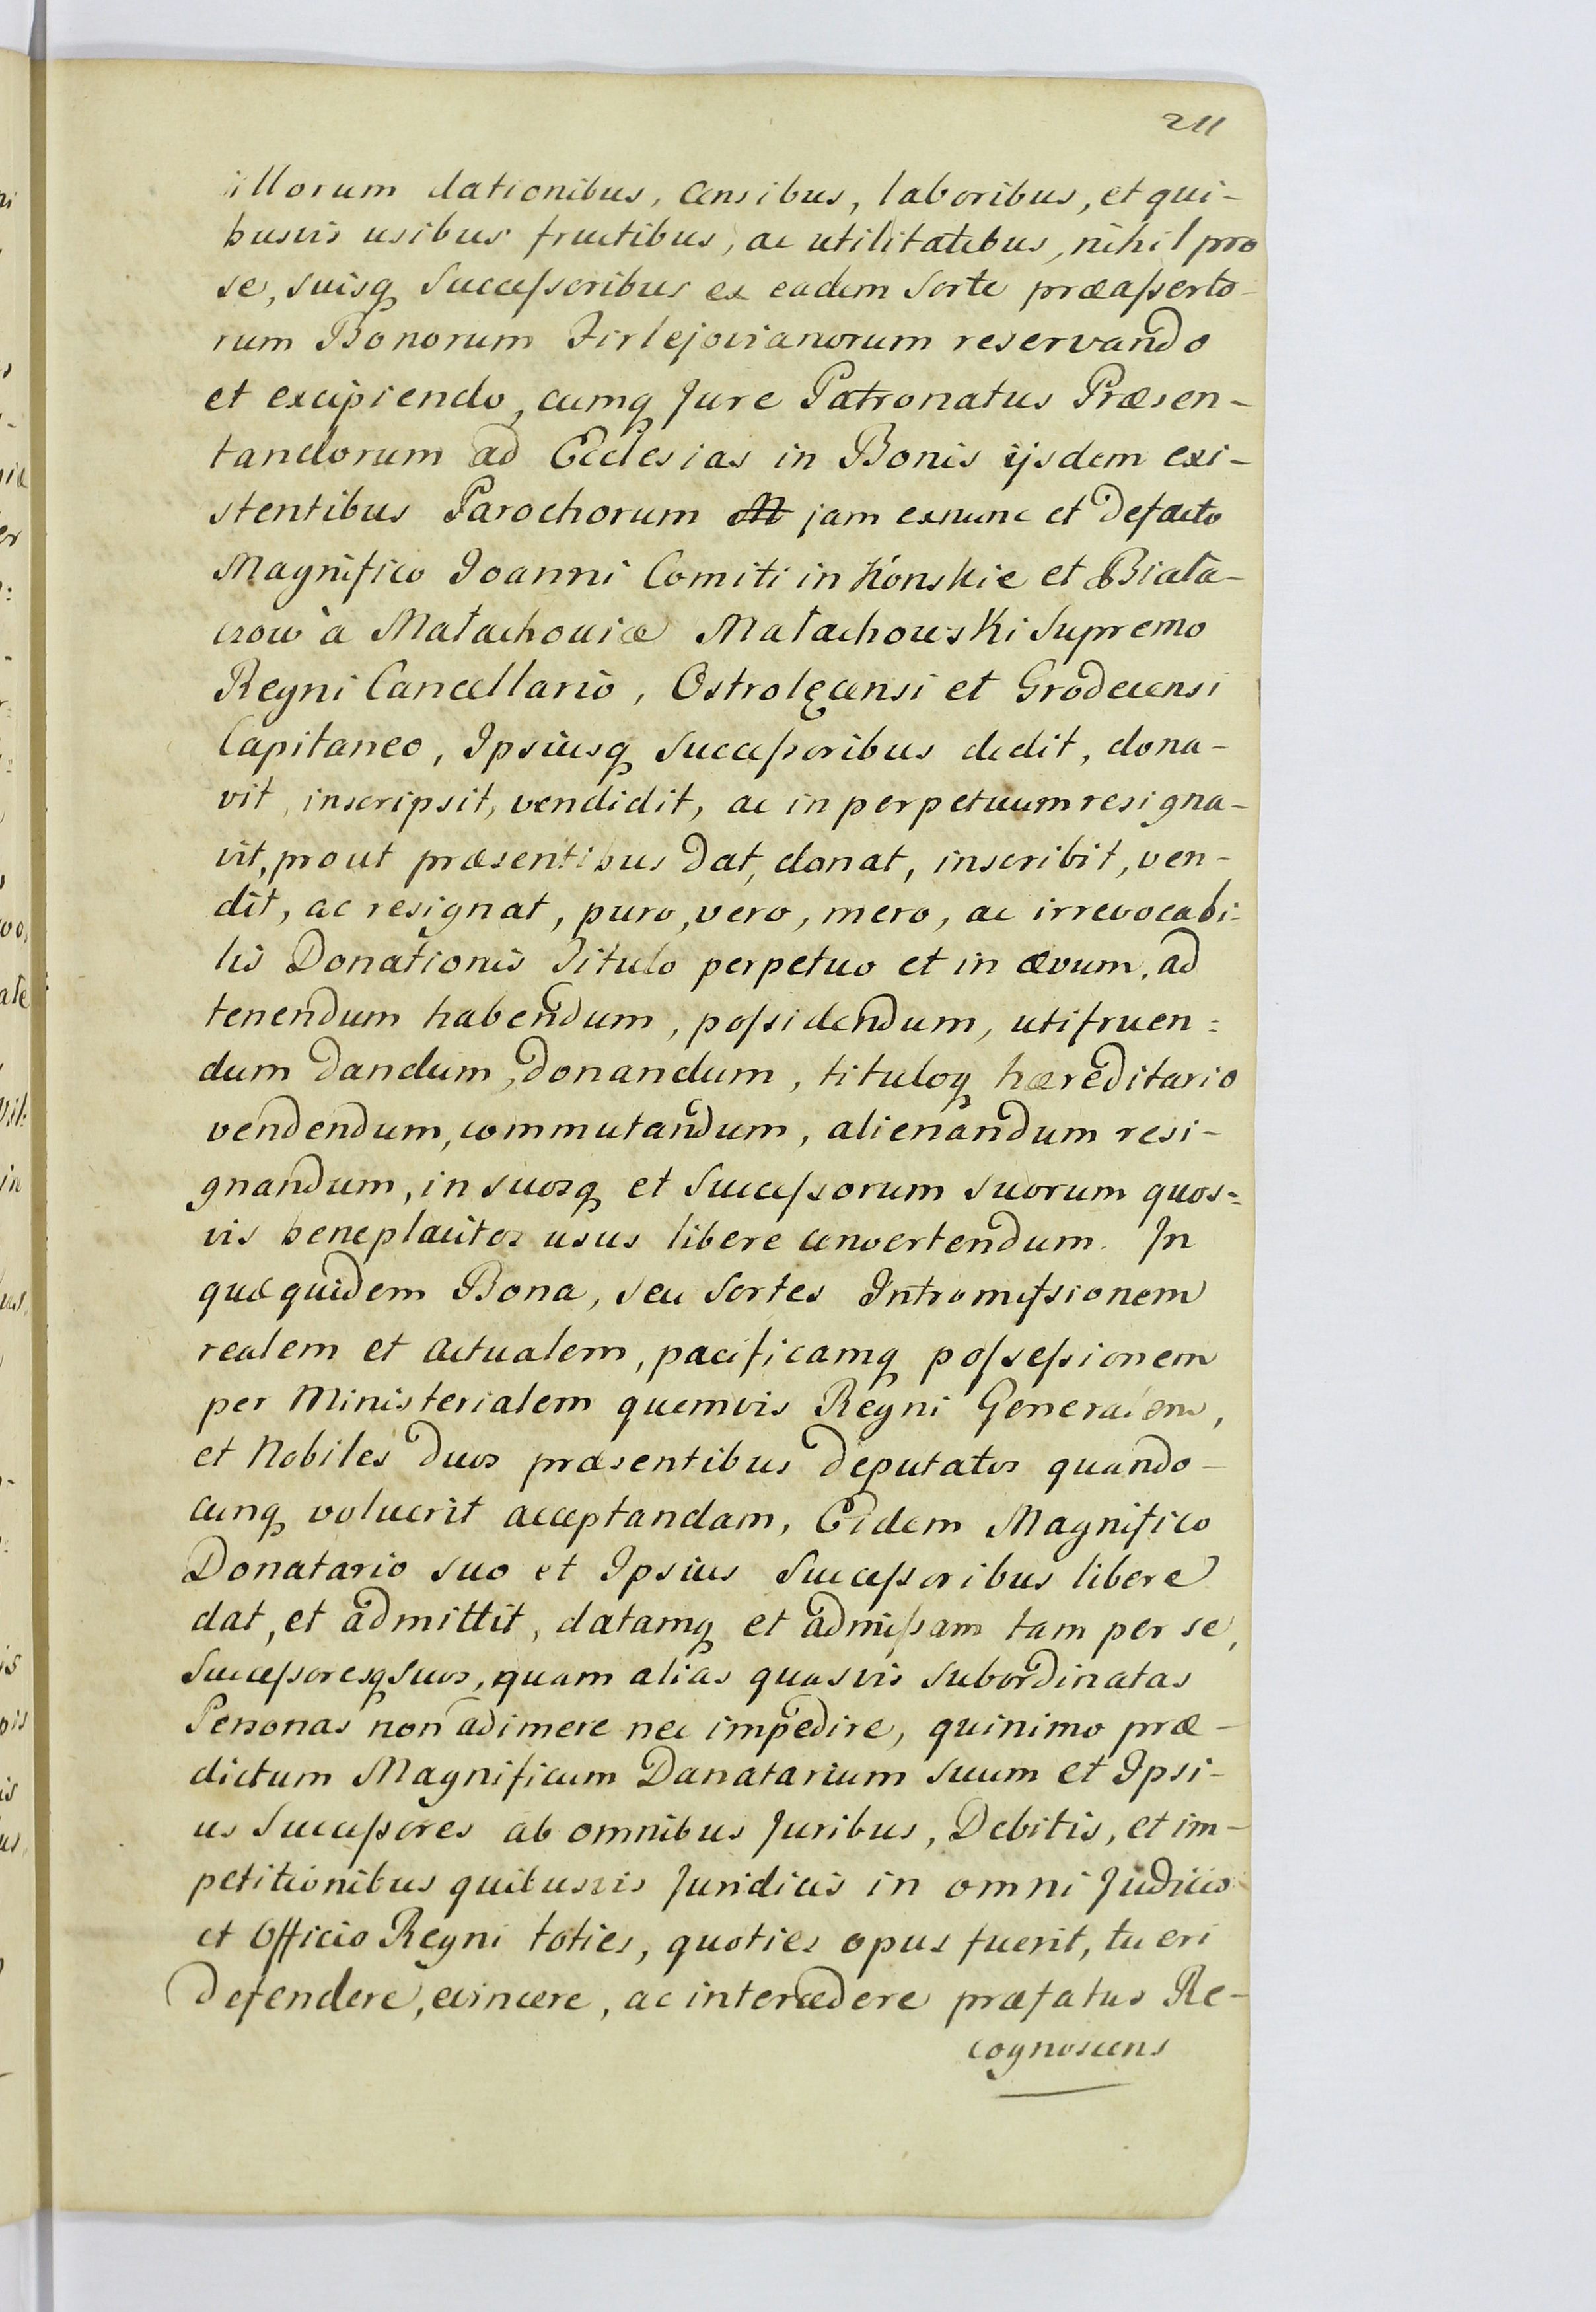 211
illorum dationibus, censibus, laboribus, et qui-
busvis usibus fructibus, ac utilitatibus, nihil pro
se, suisq successoribus ex eadem Sorte præasserto-
rum Bonorum Firlejovianorum reservando
et excipiendo, cumq Jure Patronatus Præsen-
tandorum ad Ecclesias in Bonis ijsdem exi-
stentibus Parochorum jam exnunc et defacto
Magnifico Joanni Comiti in Końskie et Białá-
czow à Małachovice Małachowski Supremo
Regni Cancellario, Ostrolęcensi et Grodecensi
Capitaneo, Ipsiusq Successoribus dedit, dona-
vit, inscripsit, vendidit, ac in perpetuum resigna-
vit, prout præsentibus dat, donat, inscribit, ven-
dit, ac resignat, puro, vero, mero, ac irrevocabi=
lis Donationis Titulo perpetuo et in ævum, ad
tenendum habendum, possidendum, utifruen=
dum dandum, donandum, tituloq hæreditario
vendendum, commutandum, alienandum resi-
gnandum, in suosq et Successorum suorum quos=
vis beneplacitos usus libere convertendum. In
quæ quidem Bona, seu Sortes Intromissionem
realem et actualem, pacificamq possessionem
per Ministerialem quemvis Regni Generalem,
et Nobiles duos præsentibus deputatos quando-
cunq voluerit acceptandam, Eidem Magnifico
Donatario suo et Ipsius Successoribus libere
dat, et admittit, datamq et admissam tam per se,
Successoresq suos, quam alias quasvis subordinatas
Personas non adimere nec impedire, quinimo præ-
dictum Magnificum Danatarium suum et Ipsi-
us Successores ab omnibus Juribus, Debitis, et im-
petitionibus quibusvis Juridicis in omni Judicio
et Officio Regni toties, quoties opus fuerit, tueri
defendere, evincere, ac intercedere præfatus Re-
cognoscens